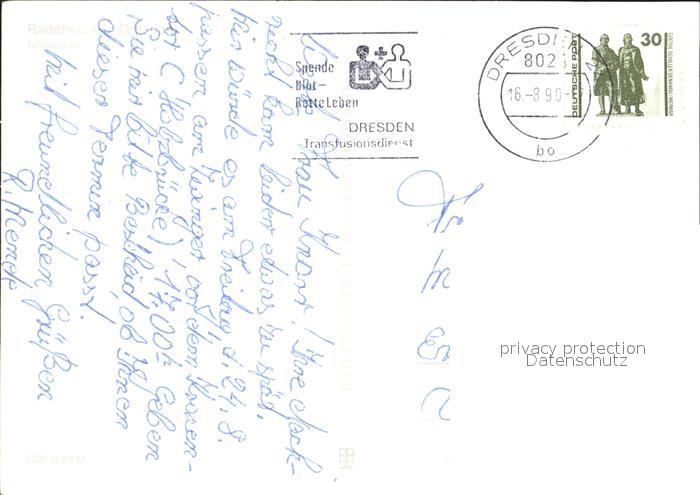 Radebeul
Spende
Blut-
Rette Leben
DRESDEN
Transfusionsdienst
DRESDEN
802
16.-8.90-
bo
DEUTSCHE POST
30
Liebe Frau Knorr! Ihre Nach-
richt kam leider etwas zu spät.
Mir würde es am Freitag d. 24. 8.
passen am Zwinger vor dem Kronen-
tor (Holzbrücke), 17.00 h. Geben
Sie mir bitte Bescheid, ob Ihnen
dieser Termin passt.
Mit freundlichen Grüßen
R. Mende
privacy protection
Datenschutz
DDR 0,20 M